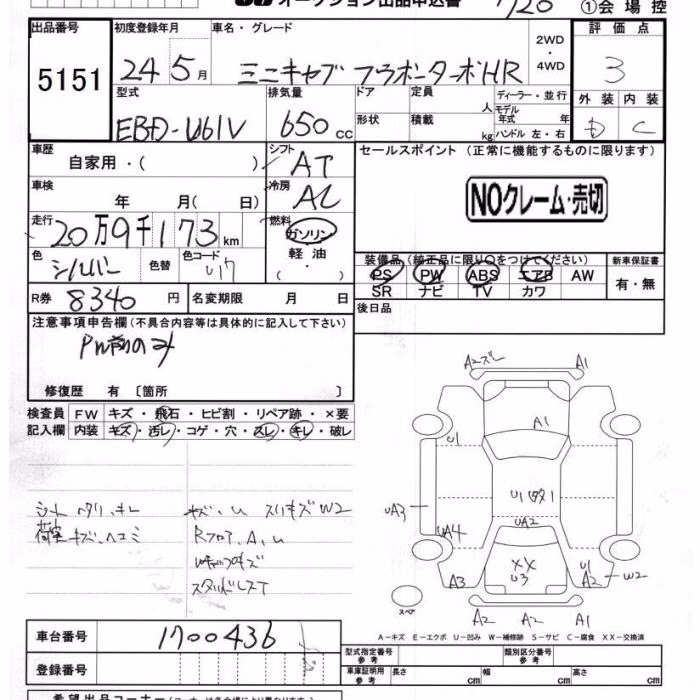 オークション出品申込書 1/20 ①会場控
出品番号 初度登録年月 車名・グレード 2WD・4WD 評価点
5151 24年5月 ミニキャブ ブラボーターボHR 3
型式 排気量 ドア 定員 人 ディーラー・並行 外装 内装
モデル年式 年
EBD-U61V 650cc 形状 積載 kg ハンドル 左・右 D C
車歴 シフト セールスポイント (正常に機能するものに限ります)
自家用・( ) AT
車検 冷房 NOクレーム・売切
年 月( 日) AC
走行 燃料
20万9千173km ガソリン
色 色替 色コード 軽油 装備品(純正品に限り○をつけてください) 新車保証書
シルバー U17 ・( ) PS PW ABS エアB AW 有・無
SR ナビ TV カワ
R券 8340円 名変期限 月 日 後日品
注意事項申告欄(不具合内容等は具体的に記入して下さい)
PW前のみ
修復歴 有 〔箇所 〕
検査員 FW キズ・飛石・ヒビ割・リペア跡・×要
記入欄 内装 キズ・汚レ・コゲ・穴・スレ・キレ・破レ
A2ズレ A1
A1
U1
U1
UA3 UA2
UA4
XX
U3
A3 U1
A2 W2
スペア A2 A2 A1
シート ヘタリ、キレ キズ、U スリキズ W2
荷室 キズ、ヘコミ Rフロア、A、U
スタッドレスT
A-キズ E-エクボ U-凹み W-補修跡 S-サビ C-腐食 XX-交換済
車台番号 1700436 型式指定番号 参考 類別区分番号 参考
登録番号 車庫証明用 参考 長さ cm 幅 cm 高さ cm
希望出品コーナー